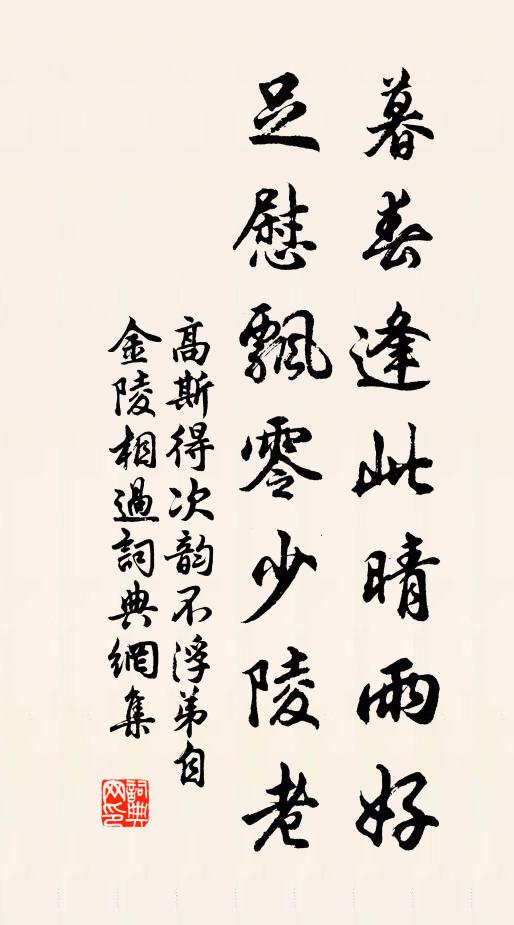 暮春逢此晴雨好
足慰飄零少陵老
高斯得次韵不浮弟自
金陵相過詞典網集
詞典
网印